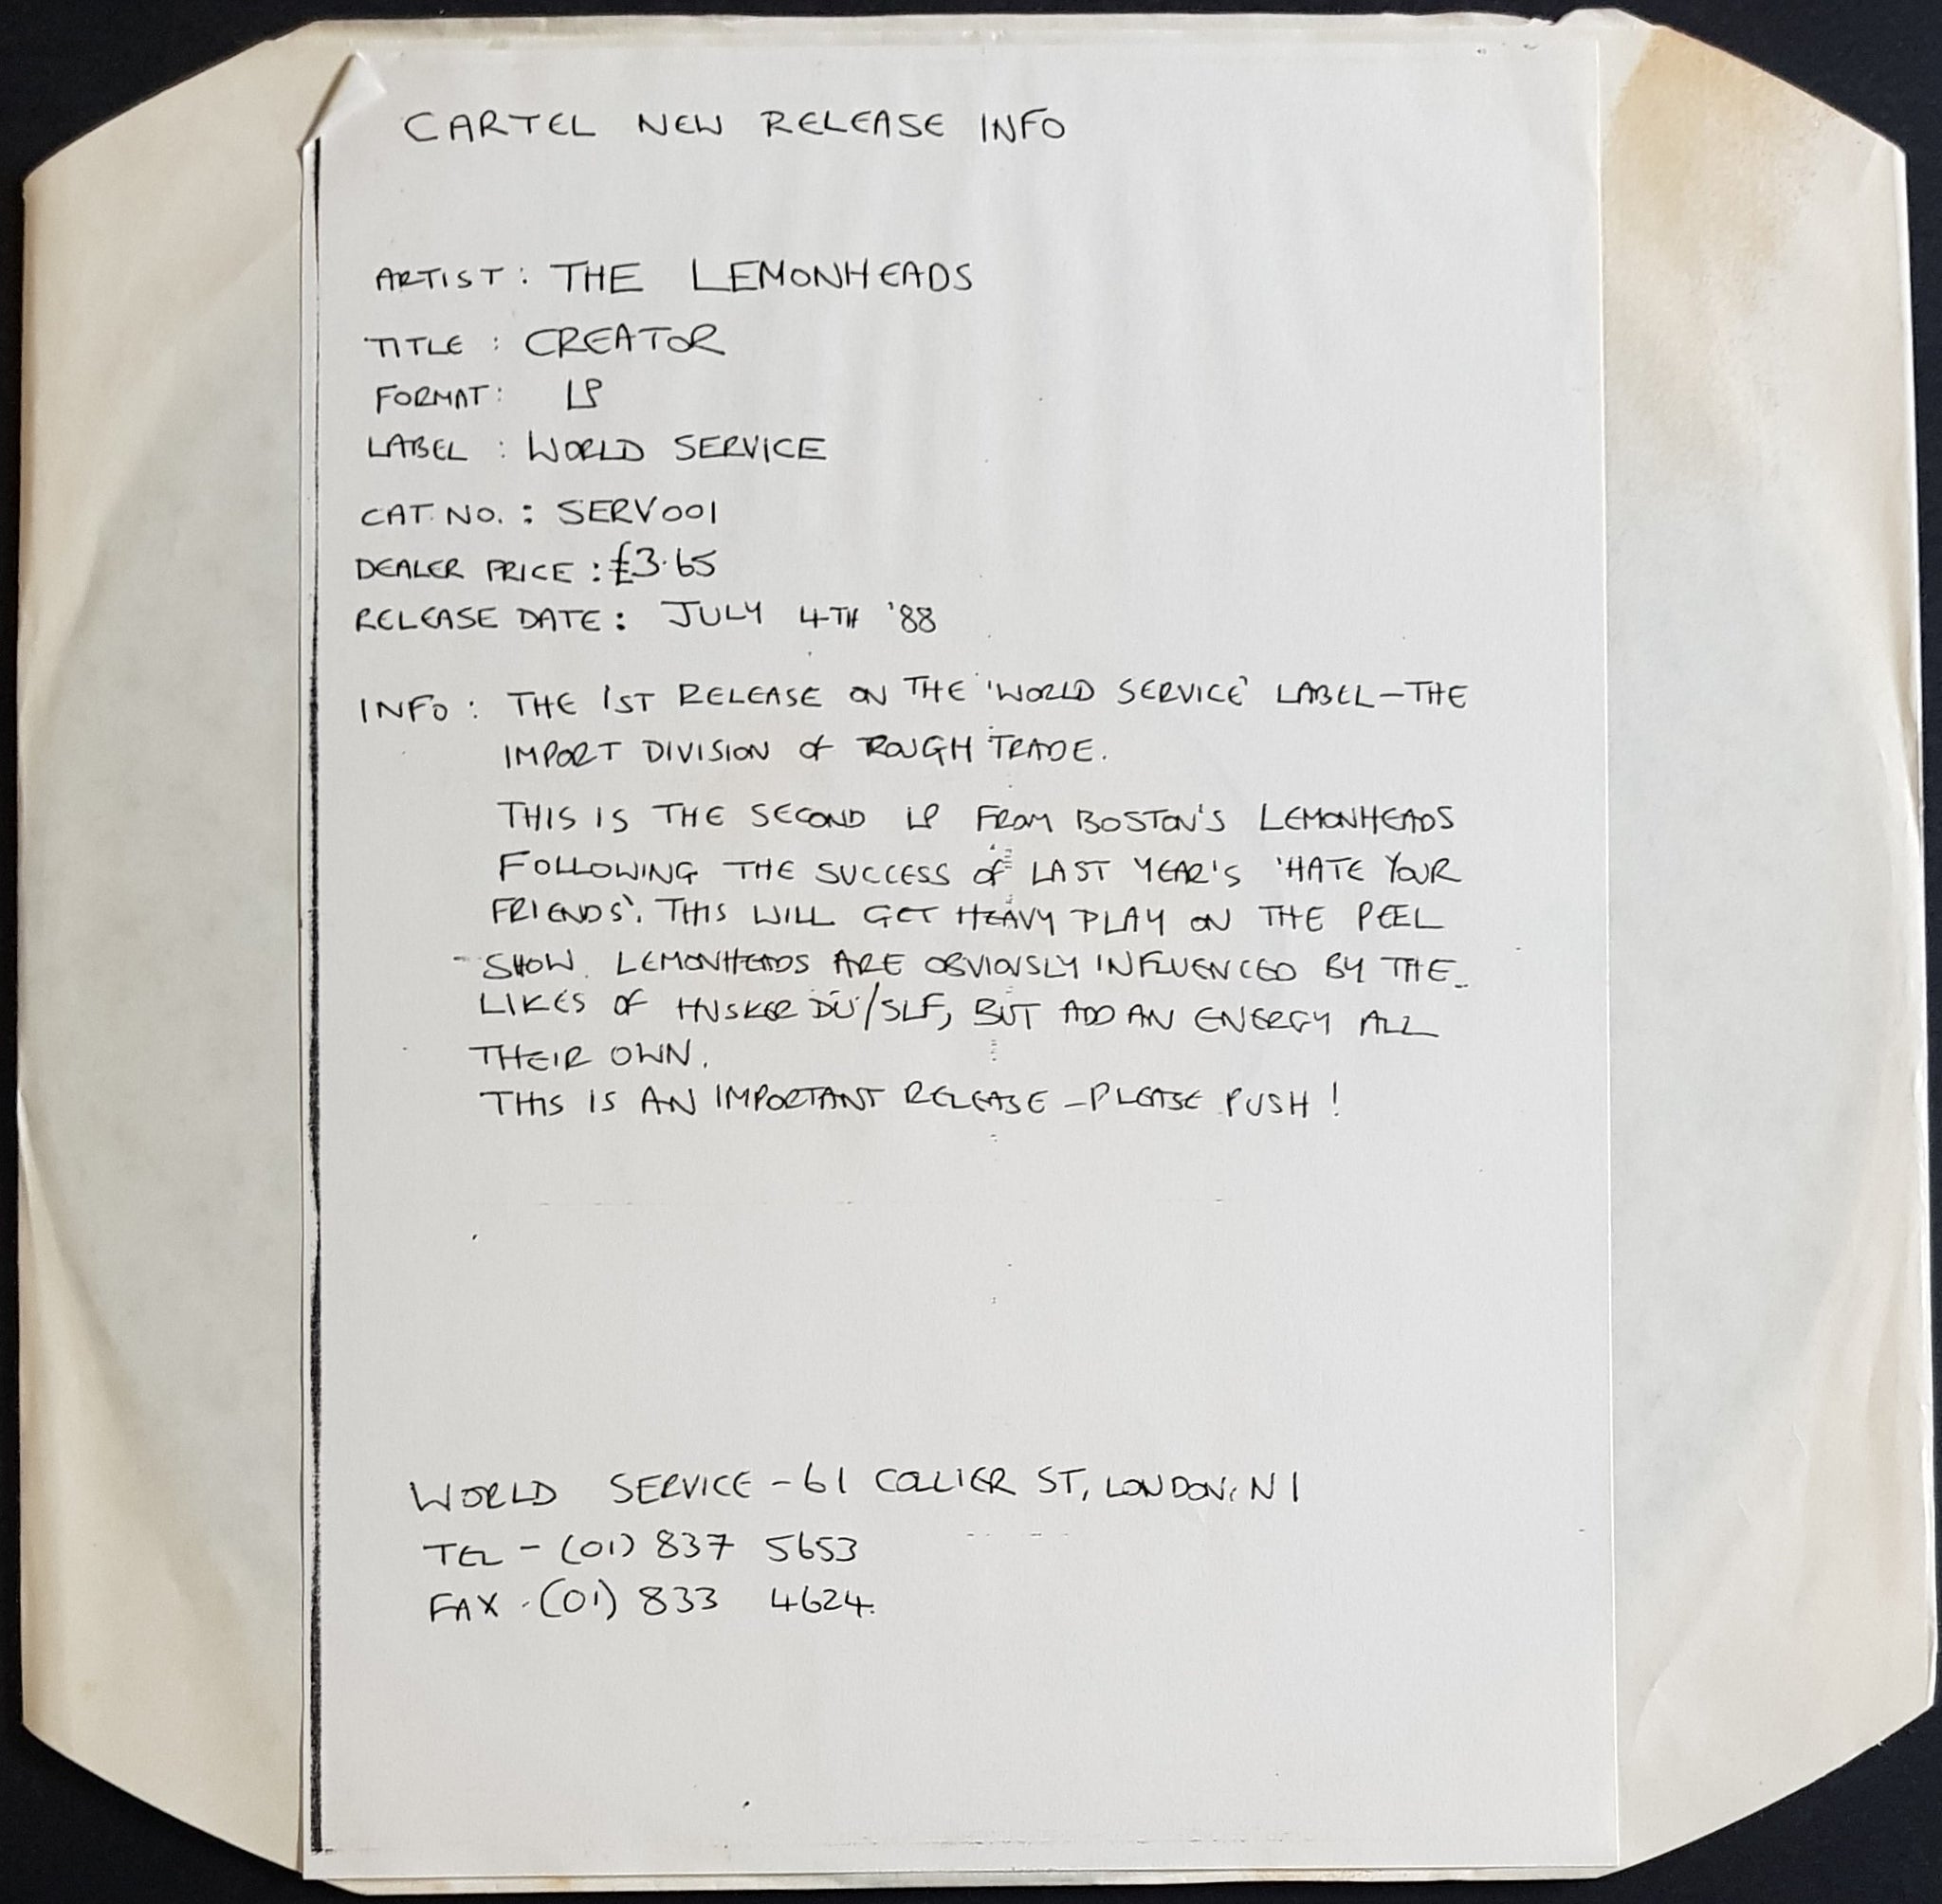 CARTEL NEW RELEASE INFO
ARTIST : THE LEMONHEADS
TITLE : CREATOR
FORMAT : LP
LABEL : WORLD SERVICE
CAT. NO. : SERV001
DEALER PRICE : £3.65
RELEASE DATE : JULY 4TH '88
INFO : THE 1ST RELEASE ON THE 'WORLD SERVICE' LABEL – THE
IMPORT DIVISION of ROUGH TRADE.
THIS IS THE SECOND LP FROM BOSTON'S LEMONHEADS
FOLLOWING THE SUCCESS of LAST YEAR'S 'HATE YOUR
FRIENDS'. THIS WILL GET HEAVY PLAY ON THE PEEL
SHOW. LEMONHEADS ARE OBVIOUSLY INFLUENCED BY THE
LIKES OF HUSKER DÜ/SLF, BUT ADD AN ENERGY ALL
THEIR OWN.
THIS IS AN IMPORTANT RELEASE – PLEASE PUSH !
WORLD SERVICE – 61 COLLIER ST, LONDON, N1
TEL – (01) 837 5653
FAX . (01) 833 4624.